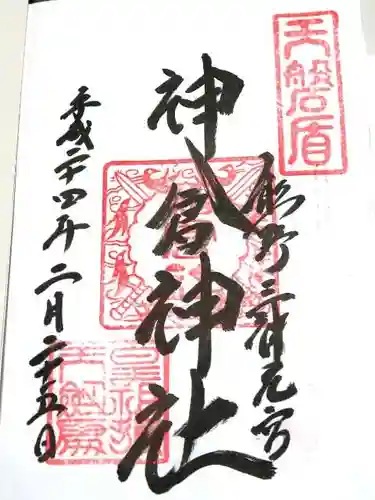 天磐盾
熊野三所元宮
神倉神社
平成二十四年二月二十五日